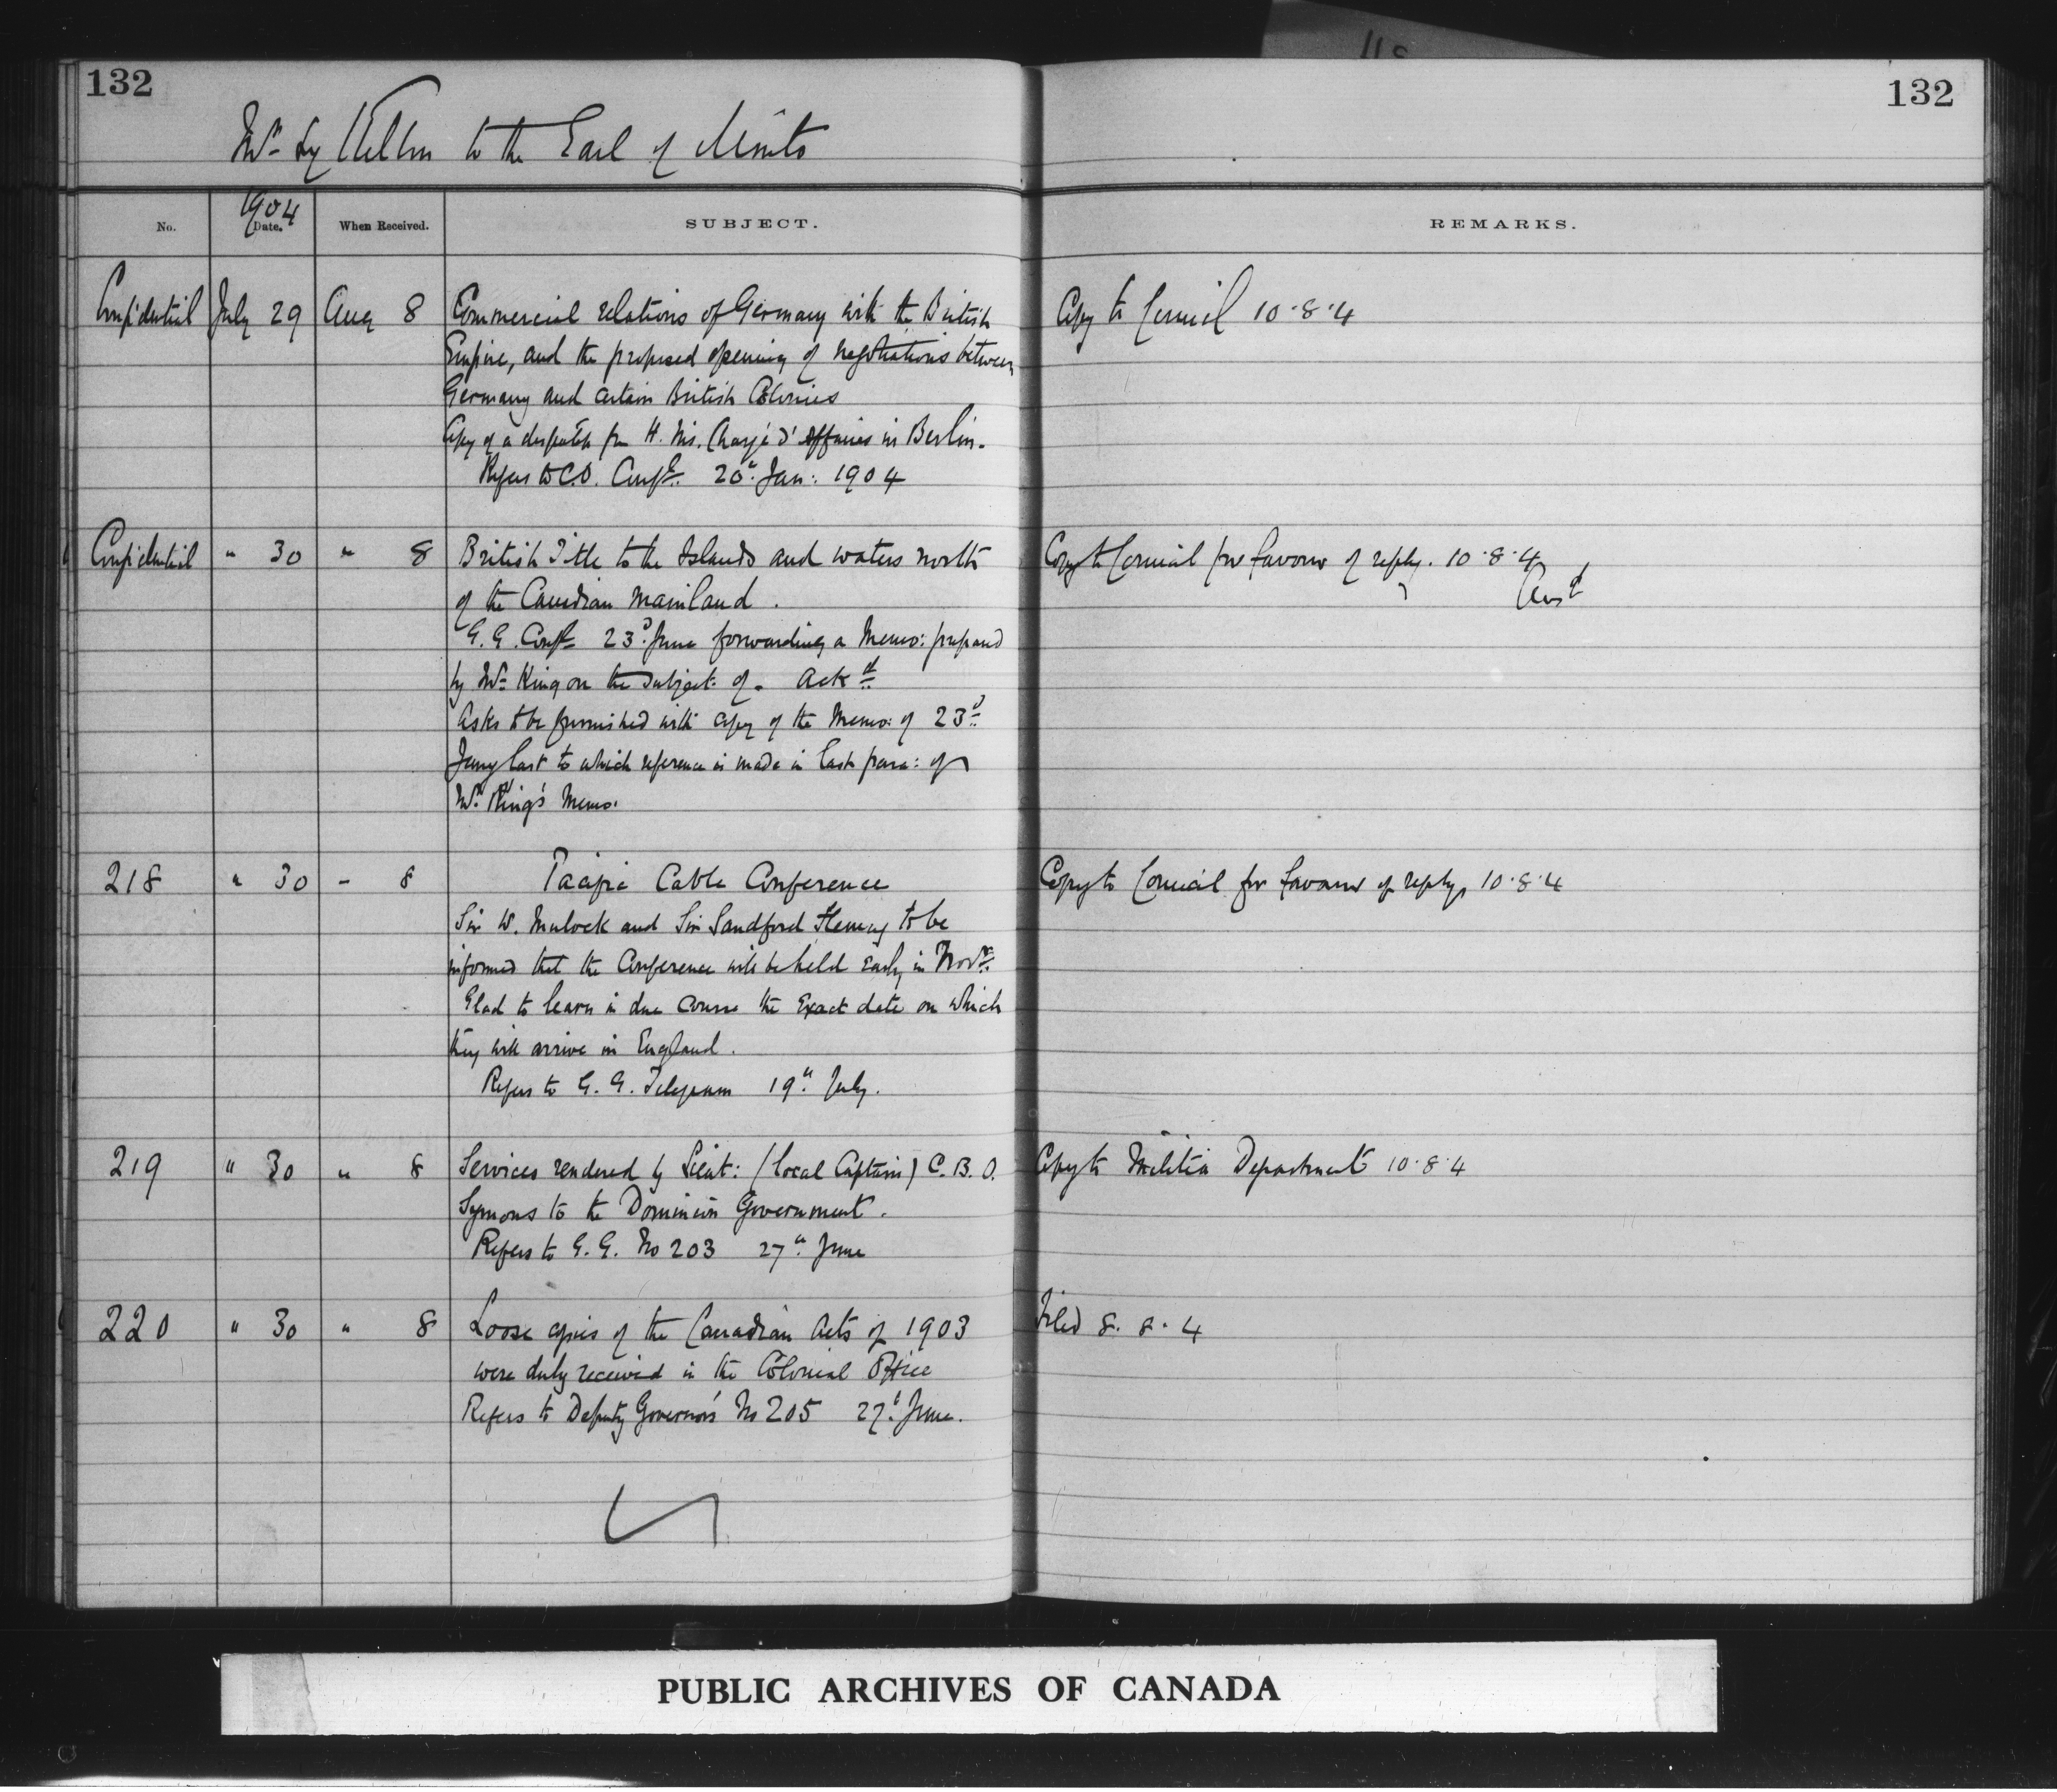 132
132
Mr. Lyttelton to the Earl of Minto
No.
1904
Date.
When Received.
SUBJECT.
REMARKS.
Confidential July 29 Aug 8 Commercial relations of Germany with the British
Copy to Council 10.8.4
Empire, and the proposed opening of negotiations between
Germany and certain British Colonies
Copy of a despatch fm H. Ms. Chargé d'Affaires in Berlin.
Refers to C.O. Conf. 20th Jan: 1904
Confidential " 30 " 8 British Title to the Islands and waters north
Copy to Council for favour of reply. 10.8.4
Ansd
of the Canadian mainland.
G.G. Conf 23d June forwarding a Memo: prepared
by Mr. King on the subject of. Ackd
Asks to be furnished with copy of the Memo: of 23d
Jany last to which reference is made in last para: of
Mr. King's Memo.
218 " 30 " 8 Pacific Cable Conference
Copy to Council for favour of reply, 10.8.4
Sir W. Mulock and Sir Sandford Fleming to be
informed that the Conference will be held early in Novr.
Glad to learn in due course the exact date on which
they will arrive in England.
Refers to G. G. Telegram 19th July.
219 " 30 " 8 Services rendered by Lieut: (local Captain) C.B.O.
Copy to Militia Department 10.8.4
Symons to the Dominion Government.
Refers to G. G. No 203 27th June
220 " 30 " 8 Loose copies of the Canadian Acts of 1903
Filed 8.8.4
were duly received in the Colonial Office
Refers to Deputy Governor's No 205 27th June.
PUBLIC ARCHIVES OF CANADA